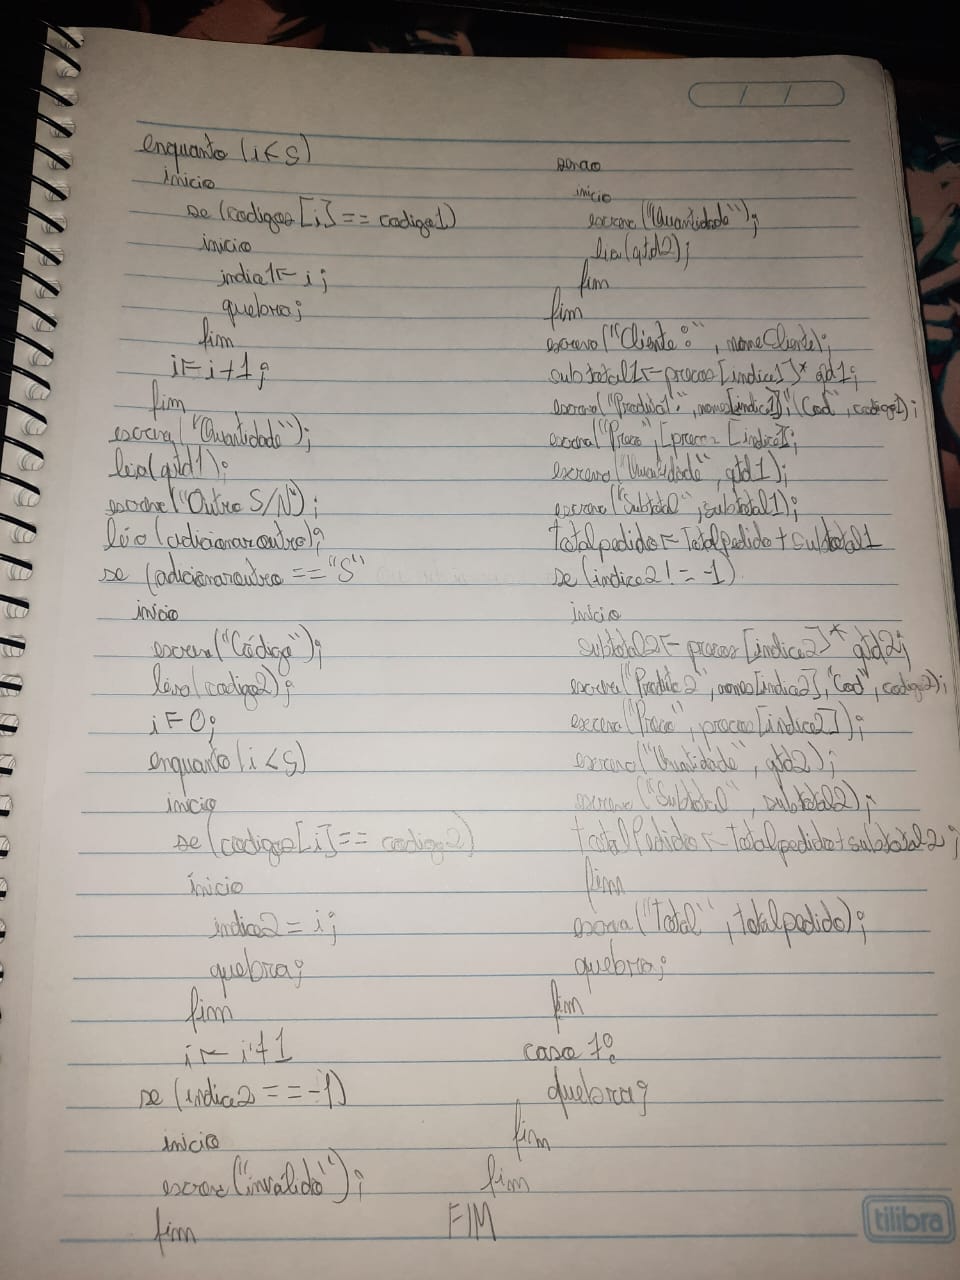 enquanto (i < 5)
inicio
se (codigos[i] == codigo1)
inicio
indice1 ← i;
quebra;
fim
i ← i+1;
fim
escreva("Quantidade");
leia(qtd1);
escreva("Outro S/N");
leia(adicionaroutro);
se (adicionaroutro == "S"
inicio
escreva("Código");
leia(codigo2);
i ← 0;
enquanto (i < 5)
inicio
se (codigos[i] == codigo2)
inicio
indice2 = i;
quebra;
fim
i ← i+1
se (indice2 == -1)
inicio
escreva("inválido");
fim
senao
inicio
escreva("Quantidade");
leia(qtd2);
fim
fim
escreva("Cliente:", nomeCliente);
subtotal1 ← precos[indice1] * qtd1;
escreva("Produto1:", nomes[indice1], "(Cod", codigo1);
escreva("Preco", [precos [indice1];
escreva("Quantidade", qtd1);
escreva("Subtotal", subtotal1);
totalpedido ← Totalpedido + subtotal1
se (indice2 != -1)
inicio
subtotal2 ← precos[indice2] * qtd2;
escreva("Produto2", nomes[indice2], "Cod", codigo2);
escreva("Preco", precos[indice2]);
escreva("Quantidade", qtd2);
escreva("Subtotal", subtotal2);
totalPedido ← Totalpedido + subtotal2;
fim
escreva("Total", totalpedido);
quebra;
fim
caso 7:
quebra;
fim
fim
FIM
tilibra